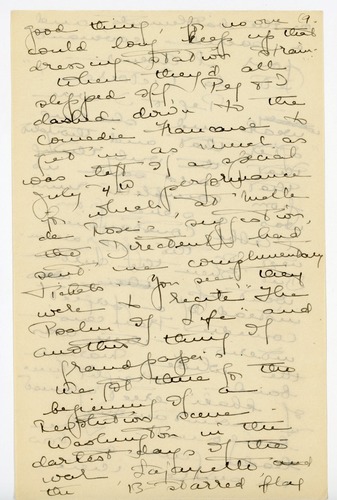 9.
good thing, for no one
could long keep up that
dressing station strain.
When they'd all
slipped off Peg & I
dashed down to the
Comedie Francaise to
get in as much as
was left of a special
July 4th performance
for which, at Melle
de Rose's suggestion,
the Directeur had
sent me complimentary
tickets. You see they
were to recite The
Psalm of Life and
another thing of
grandpapa's.
We got there for the
beginning of a
Revolution scene.
Washington in the
darkest days of the
war Lafayette and
the 13 starred flag